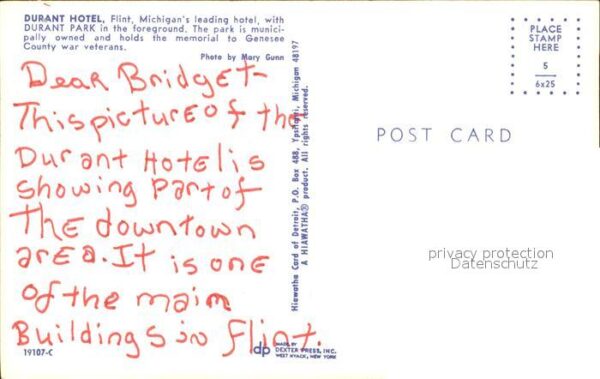 DURANT HOTEL, Flint, Michigan's leading hotel, with
DURANT PARK in the foreground. The park is munici-
pally owned and holds the memorial to Genesee
County war veterans.
Photo by Mary Gunn
Dear Bridget-
This picture of the
Durant Hotel is
showing part of
The downtown
area. It is one
of the main
Buildings in Flint.
19107-C
Hiawatha Card of Detroit, P.O. Box 488, Ypsilanti, Michigan 48197
A HIAWATHA® product. All rights reserved.
dp
MADE BY
DEXTER PRESS, INC.
WEST NYACK, NEW YORK
PLACE
STAMP
HERE
5
6x25
POST CARD
privacy protection
Datenschutz